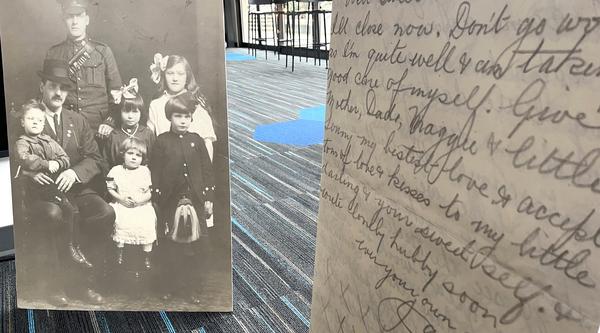 ll close now. Don't go wo
I'm quite well & am taken
good care of myself. Give
Mother, Dad, Maggie & little
my best love & accept
tons of love & kisses to my little
darling & your sweet self. &
write lovely hubby soon
ever your own